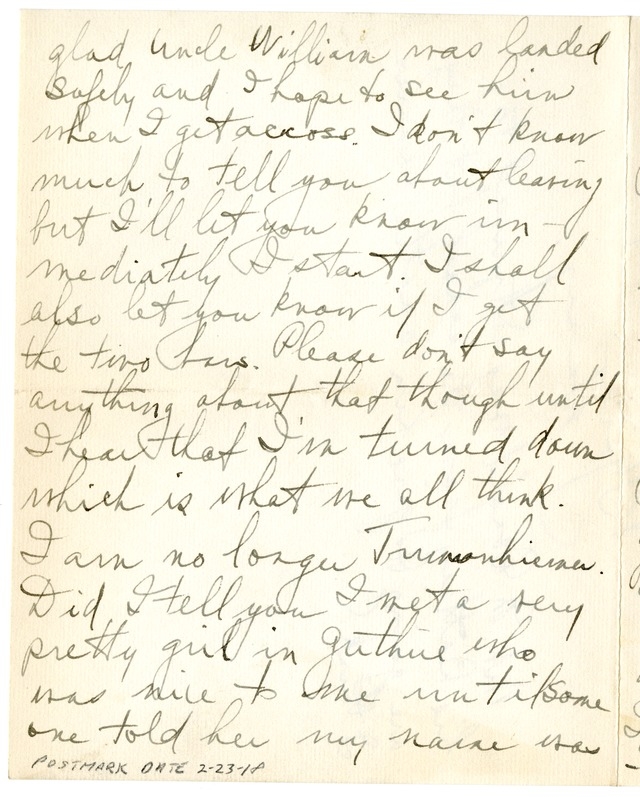 glad Uncle William was landed
safely and I hope to see him
when I get across. I don't know
much to tell you about leaving
but I'll let you know im-
mediately I start. I shall
also let you know if I get
the two bars. Please don't say
anything about that though until
I hear that I'm turned down
which is what we all think.
I am no longer Trumanhiemer.
Did I tell you I met a very
pretty girl in Guthrie who
was nice to me until some
one told her my name was
POSTMARK DATE 2-23-18